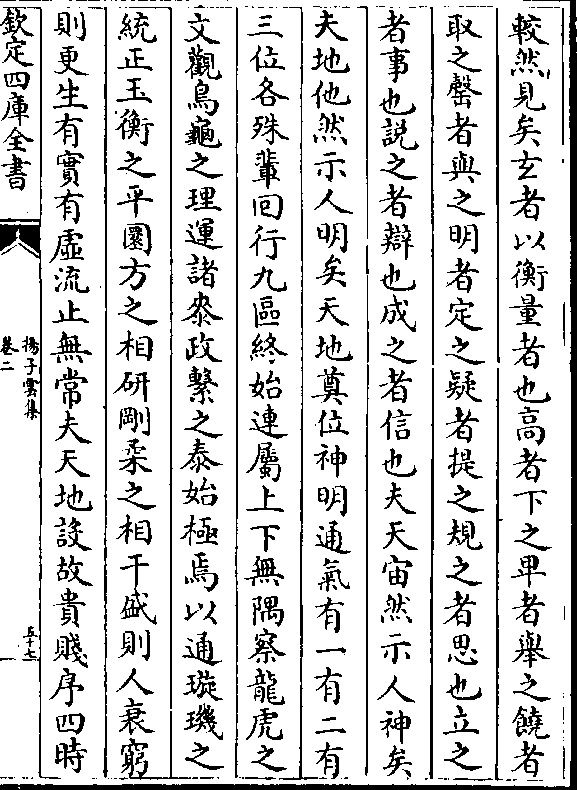 較然見矣玄者以衡量者也高者下之卑者舉之饒者
取之罄者與之明者定之疑者提之規之者思也立之
者事也説之者辯也成之者信也夫天宙然示人神矣
夫地他然示人明矣天地奠位神明通氣有一有二有
三位各殊輩回行九區終始連屬上下無隅察龍虎之
文觀鳥龜之理運諸桼政繫之泰始極焉以通璇璣之
統正玉衡之平圜方之相研剛柔之相干盛則人衰窮
則更生有實有虛流止無常夫天地設故貴賤序四時
欽定四庫全書
揚子雲集
卷二